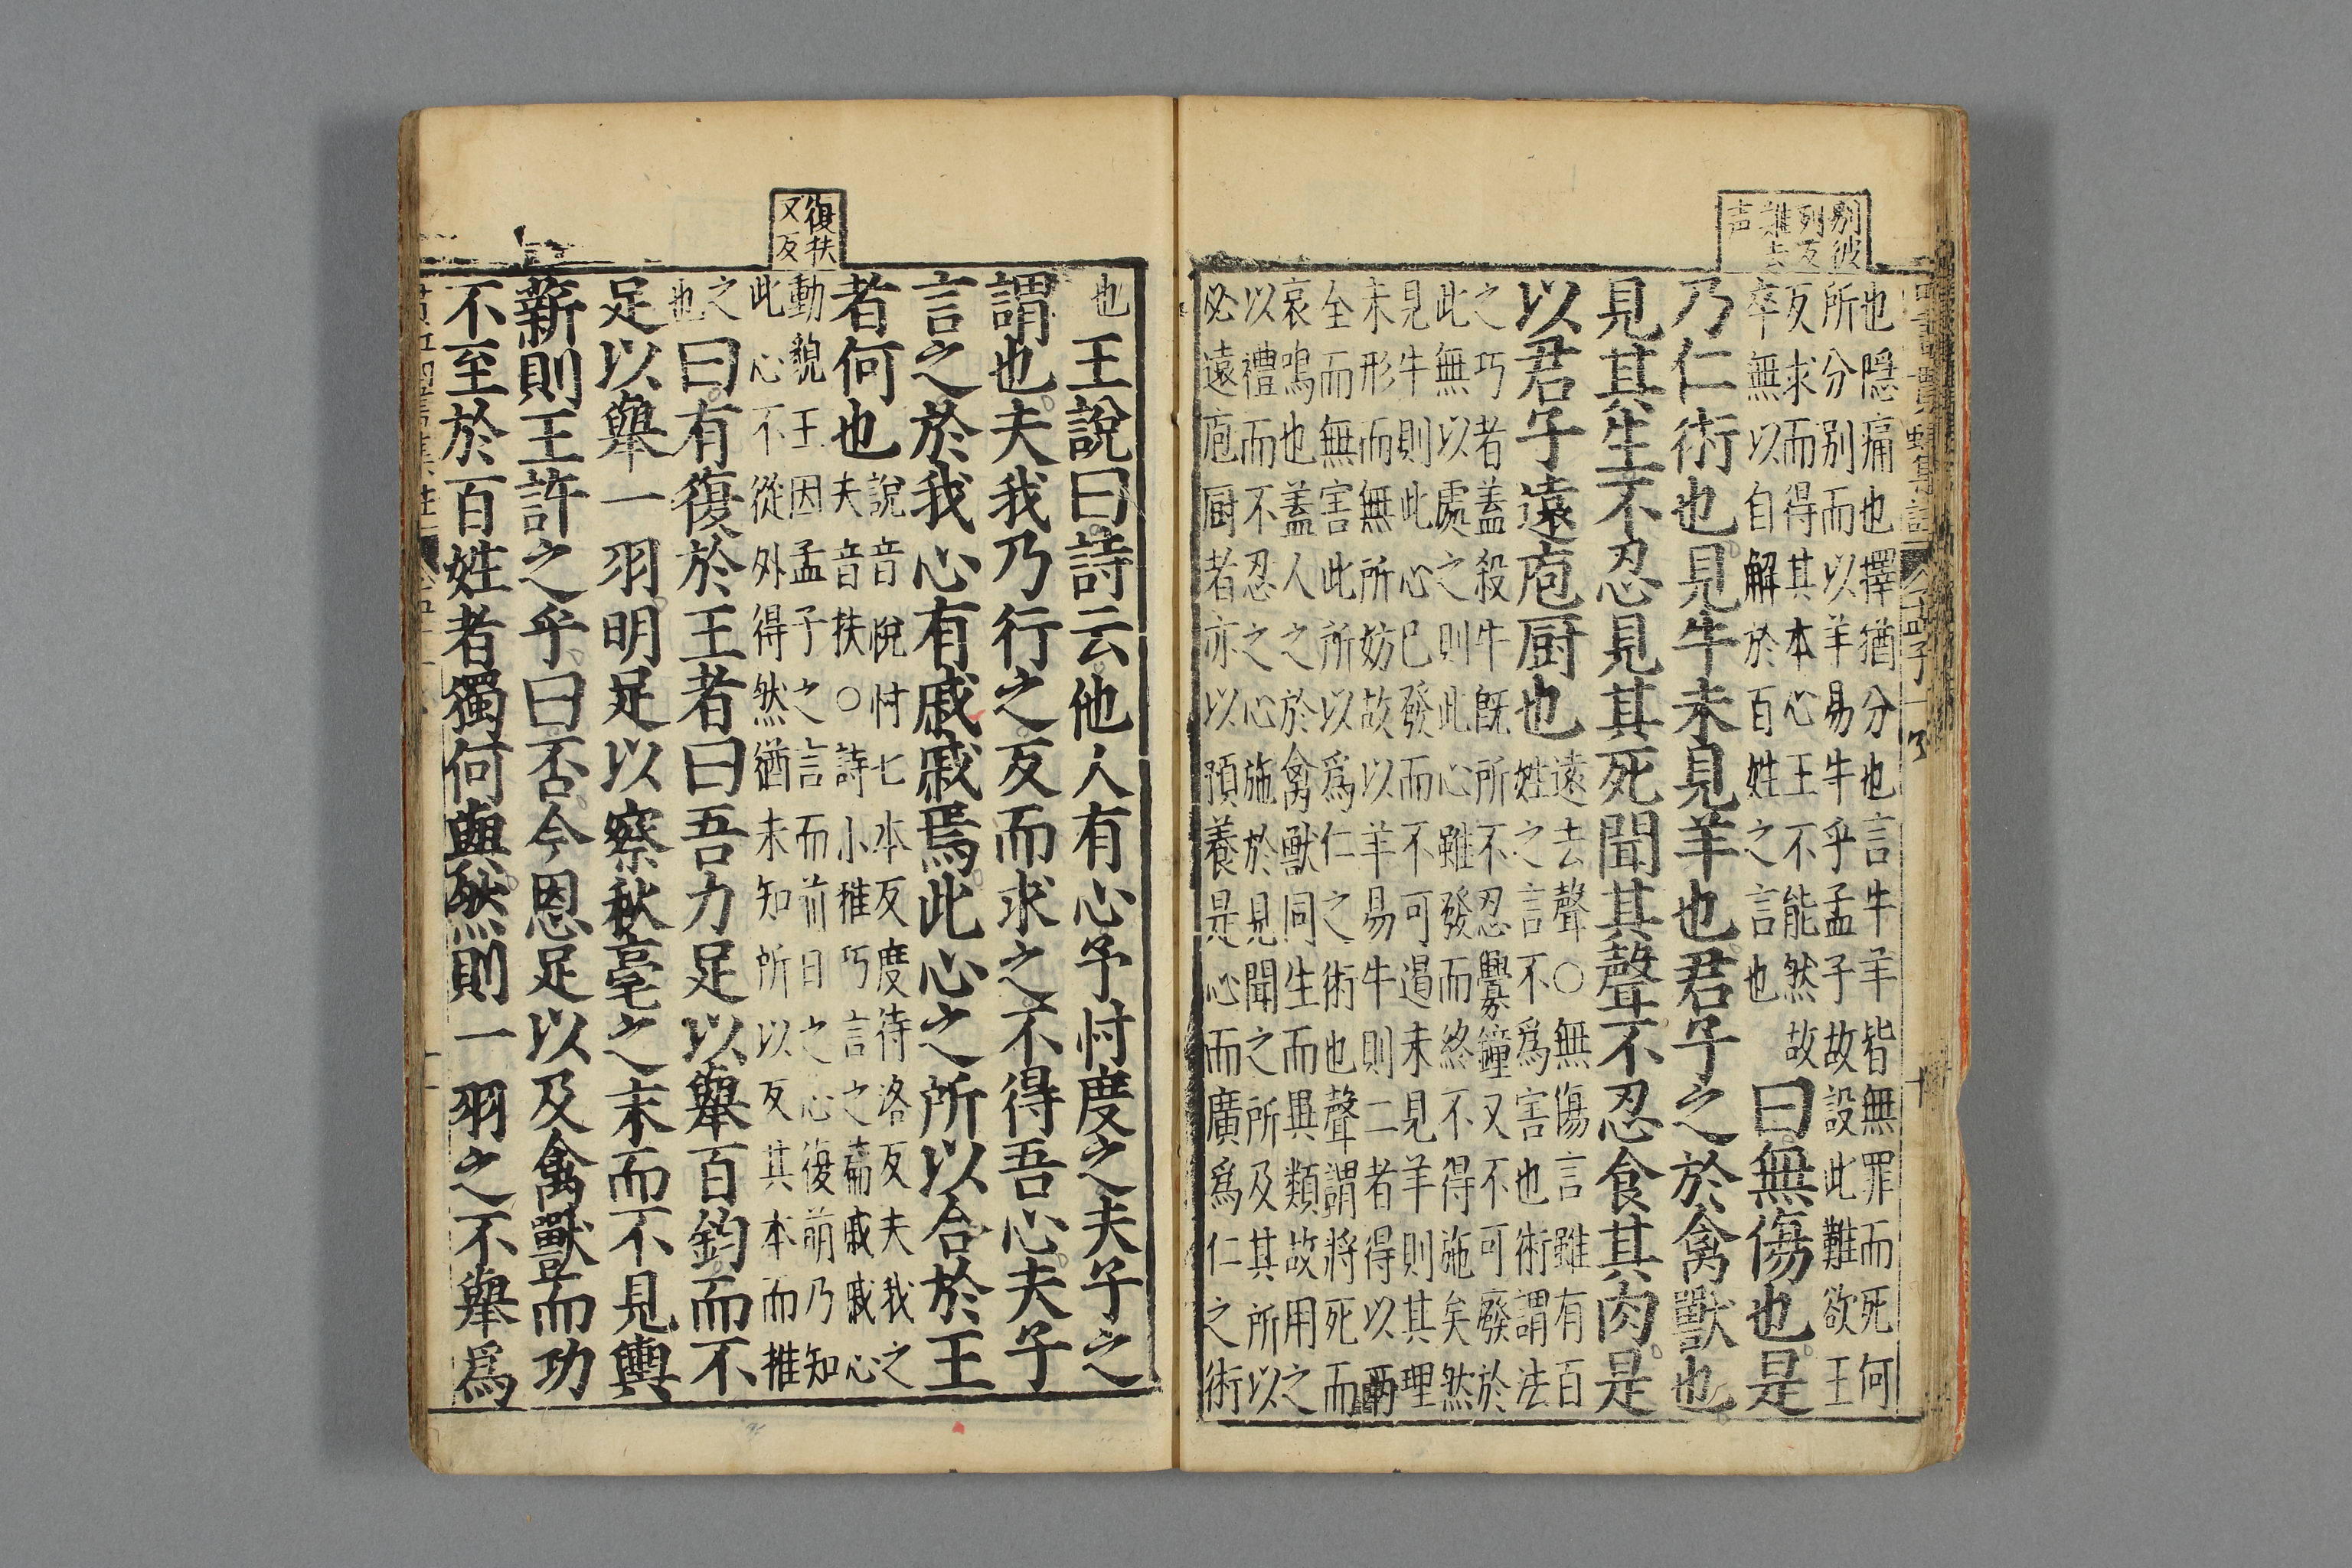 別彼
列反
難去
声
也隱痛也擇猶分也言牛羊皆無罪而死何
所分別而以羊易牛乎孟子故設此難欲王
反求而得其本心王不能然故
卒無以自解於百姓之言也
曰無傷也是
乃仁術也見牛未見羊也君子之於禽獸也
見其生不忍見其死聞其聲不忍食其肉是
以君子遠庖厨也
遠去聲○無傷言雖有百
姓之言不為害也術謂法
之巧者蓋殺牛既所不忍釁鐘又不可廢於
此無以處之則此心雖發而終不得施矣然
見牛則此心已發而不可遏未見羊則其理
未形而無所妨故以羊易牛則二者得以兩
全而無害此所以爲仁之術也聲謂將死而
哀鳴也蓋人之於禽獸同生而異類故用之
以禮而不忍之心施於見聞之所及其所以
必遠庖厨者亦以預養是心而廣爲仁之術
復扶
又反
也
王說曰詩云他人有心予忖度之夫子之
謂也夫我乃行之反而求之不得吾心夫子
言之於我心有戚戚焉此心之所以合於王
者何也
說音悅忖七本反度待洛反夫我之
夫音扶○詩小雅巧言之篇戚戚心
動貌王因孟子之言而前日之心復萌乃知
此心不從外得然猶未知所以反其本而推
之
也
曰有復於王者曰吾力足以舉百鈞而不
足以舉一羽明足以察秋毫之末而不見輿
薪則王許之乎曰否今恩足以及禽獸而功
不至於百姓者獨何與然則一羽之不舉爲